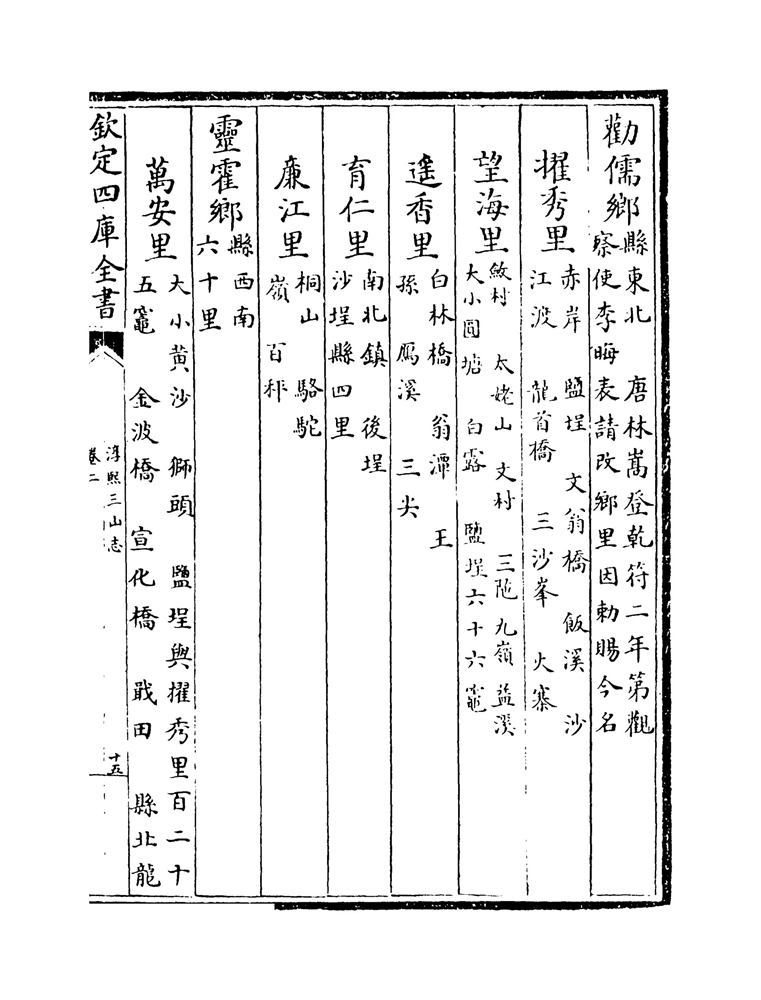 勸儒鄉縣東北　唐林嵩登乾符二年第觀
察使李晦表請改鄉里因勅賜今名
擢秀里赤岸　鹽埕　文翁橋　飯溪　沙
江渡　龍首橋　三沙峯　火寨
望海里斂村　太姥山　文村　三陁九嶺益溪
大小圓塘　白露　鹽埕六十六竈
遥香里白林橋　翁潭　王
孫　鴈溪　三尖
育仁里南北鎮　後埕
沙埕縣四里
廉江里桐山　駱駝
嶺　百秤
靈霍鄉縣西南
六十里
萬安里大小黄沙　獅頭　鹽埕與擢秀里百二十
五竈　金波橋　宣化橋　戢田　縣北龍
欽定四庫全書
淳熙三山志
卷二
十五